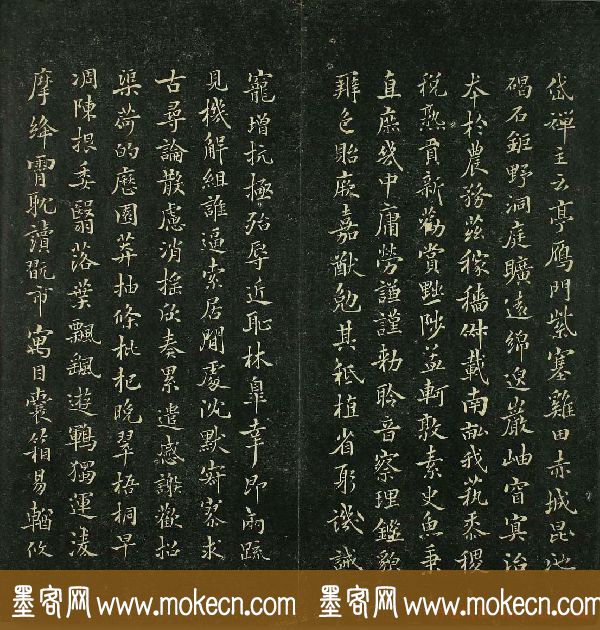 岱禪主云亭鴈門紫塞雞田赤城昆池
碣石鉅野洞庭曠遠綿邈巖岫窅冥治
本於農務茲稼穡俶載南畝我藝黍稷
稅熟貢新勸賞黜陟孟軻敦素史魚秉
直庶幾中庸勞謙謹勑聆音察理鑑貌
辨色貽厥嘉猷勉其祗植省躬譏誡
寵增抗極殆辱近恥林皋幸即兩疏
見機解組誰逼索居閒處沉默寂寥求
古尋論散慮消搖欣奏累遣慼謝歡招
渠荷的歷園莽抽條枇杷晚翠梧桐早
凋陳根委翳落葉飄颻遊鵾獨運凌
摩絳霄耽讀翫市寓目囊箱易輶攸
墨客网 www.mokecn.com 墨客网 www.mokecn.com